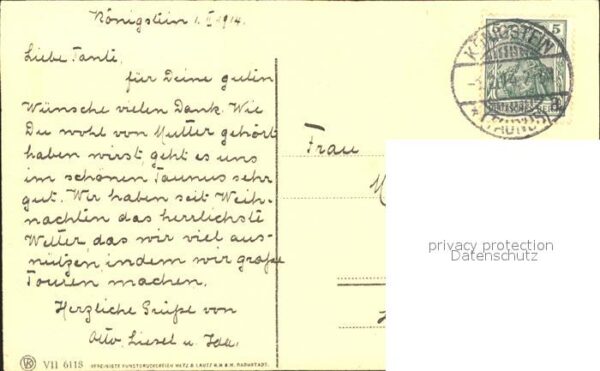 Königstein 1. II 1914.
Liebe Tante.
für Deine guten
Wünsche vielen Dank. Wie
Du wohl von Mutter gehört
haben wirst, geht es uns
im schönen Taunus sehr
gut. Wir haben seit Weih-
nachten das herrlichste
Wetter, das wir viel aus-
nützen, indem wir große
Touren machen.
Herzliche Grüße von
Otto, Liesel u. Ida.
VII 6113
VEREINIGTE KUNSTDRUCKEREIEN METZ & LAUTZ G.M.B.H. DARMSTADT.
5
KÖNIGSTEIN
* (TAUNUS)
a
Frau
privacy protection
Datenschutz